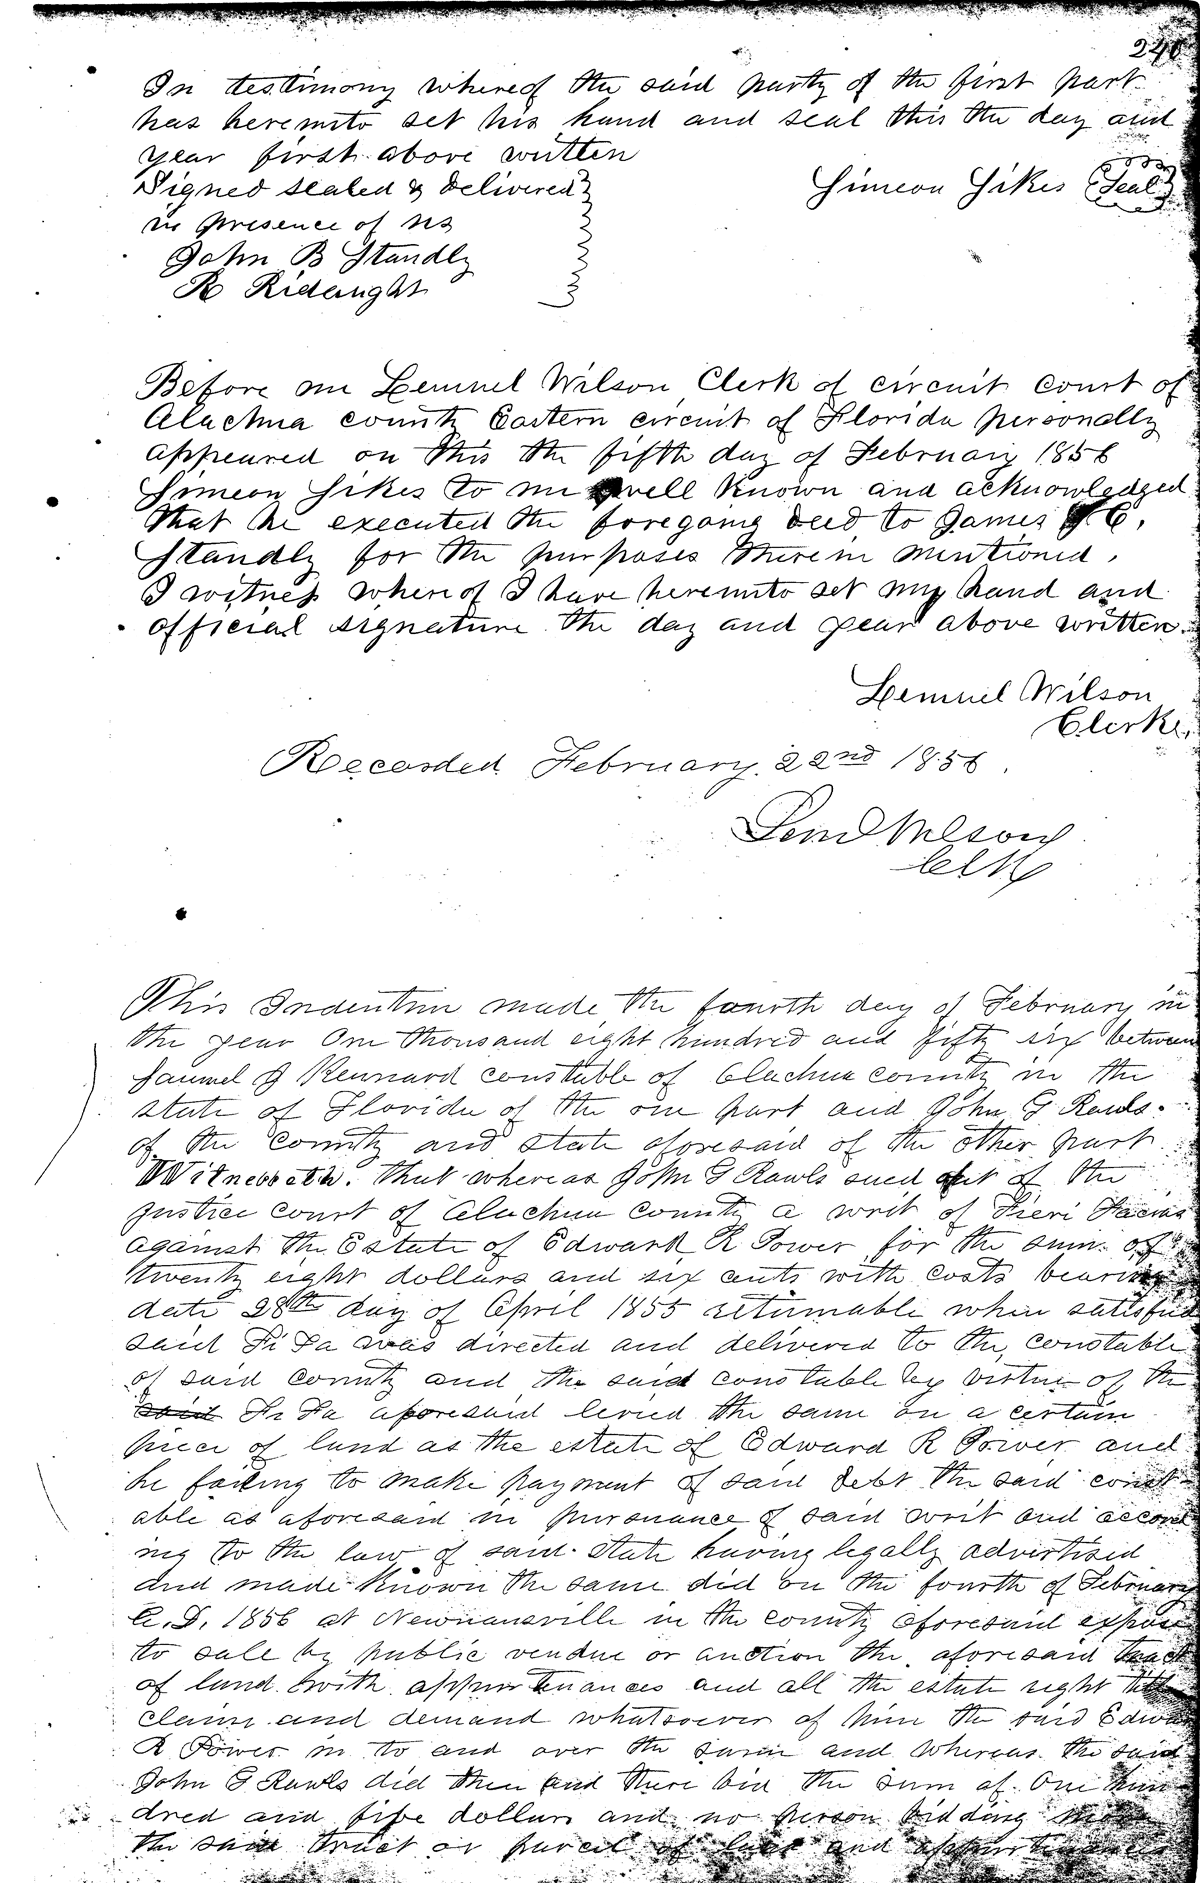 240
In testimony whereof the said party of the first part
has hereunto set his hand and seal this the day and
year first above written
Signed sealed & delivered
in presence of us
Simeon Sikes Seal
John B Standly
R Ridaught
Before me Lemuel Wilson Clerk of circuit court of
Alachua county Eastern circuit of Florida personally
appeared on this the fifth day of February 1856
Simeon Sikes to me well known and acknowledged
that he executed the foregoing deed to James C.
Standly for the purposes therein mentioned.
I witness whereof I have hereunto set my hand and
official signature the day and year above written.
Lemuel Wilson
Clerk.
Recorded February 22nd 1856.
Leml Wilson
Clk
This Indenture made the fourth day of February in
the year One thousand eight hundred and fifty six between
Samuel J Kennard constable of Alachua county in the
state of Florida of the one part and John G Rawls.
of the county and state aforesaid of the other part
Witnesseth. That whereas John G Rawls sued out of the
justice court of Alachua county a writ of Fieri Facias
against the Estate of Edward R Power for the sum of
twenty eight dollars and six cents with costs bearing
date 28th day of April 1855 returnable when satisfied
said Fi Fa was directed and delivered to the constable
of said county and the said constable by virtue of the
said Fi Fa aforesaid levied the same on a certain
piece of land as the estate of Edward R Power and
he failing to make payment of said debt the said const-
able as aforesaid in pursuance of said writ and accord
ing to the law of said state having legally advertised
and made known the same did on the fourth of February
A.D. 1856 at Newnansville in the county aforesaid expose
to sale by public vendue or auction the aforesaid tract
of land with appurtenances and all the estate right title
claim and demand whatsoever of him the said Edward
R Power in to and over the same and whereas the said
John G Rawls did then and there bid the sum of One hun
dred and five dollars and no person bidding more
the said tract or parcel of land and appurtenances